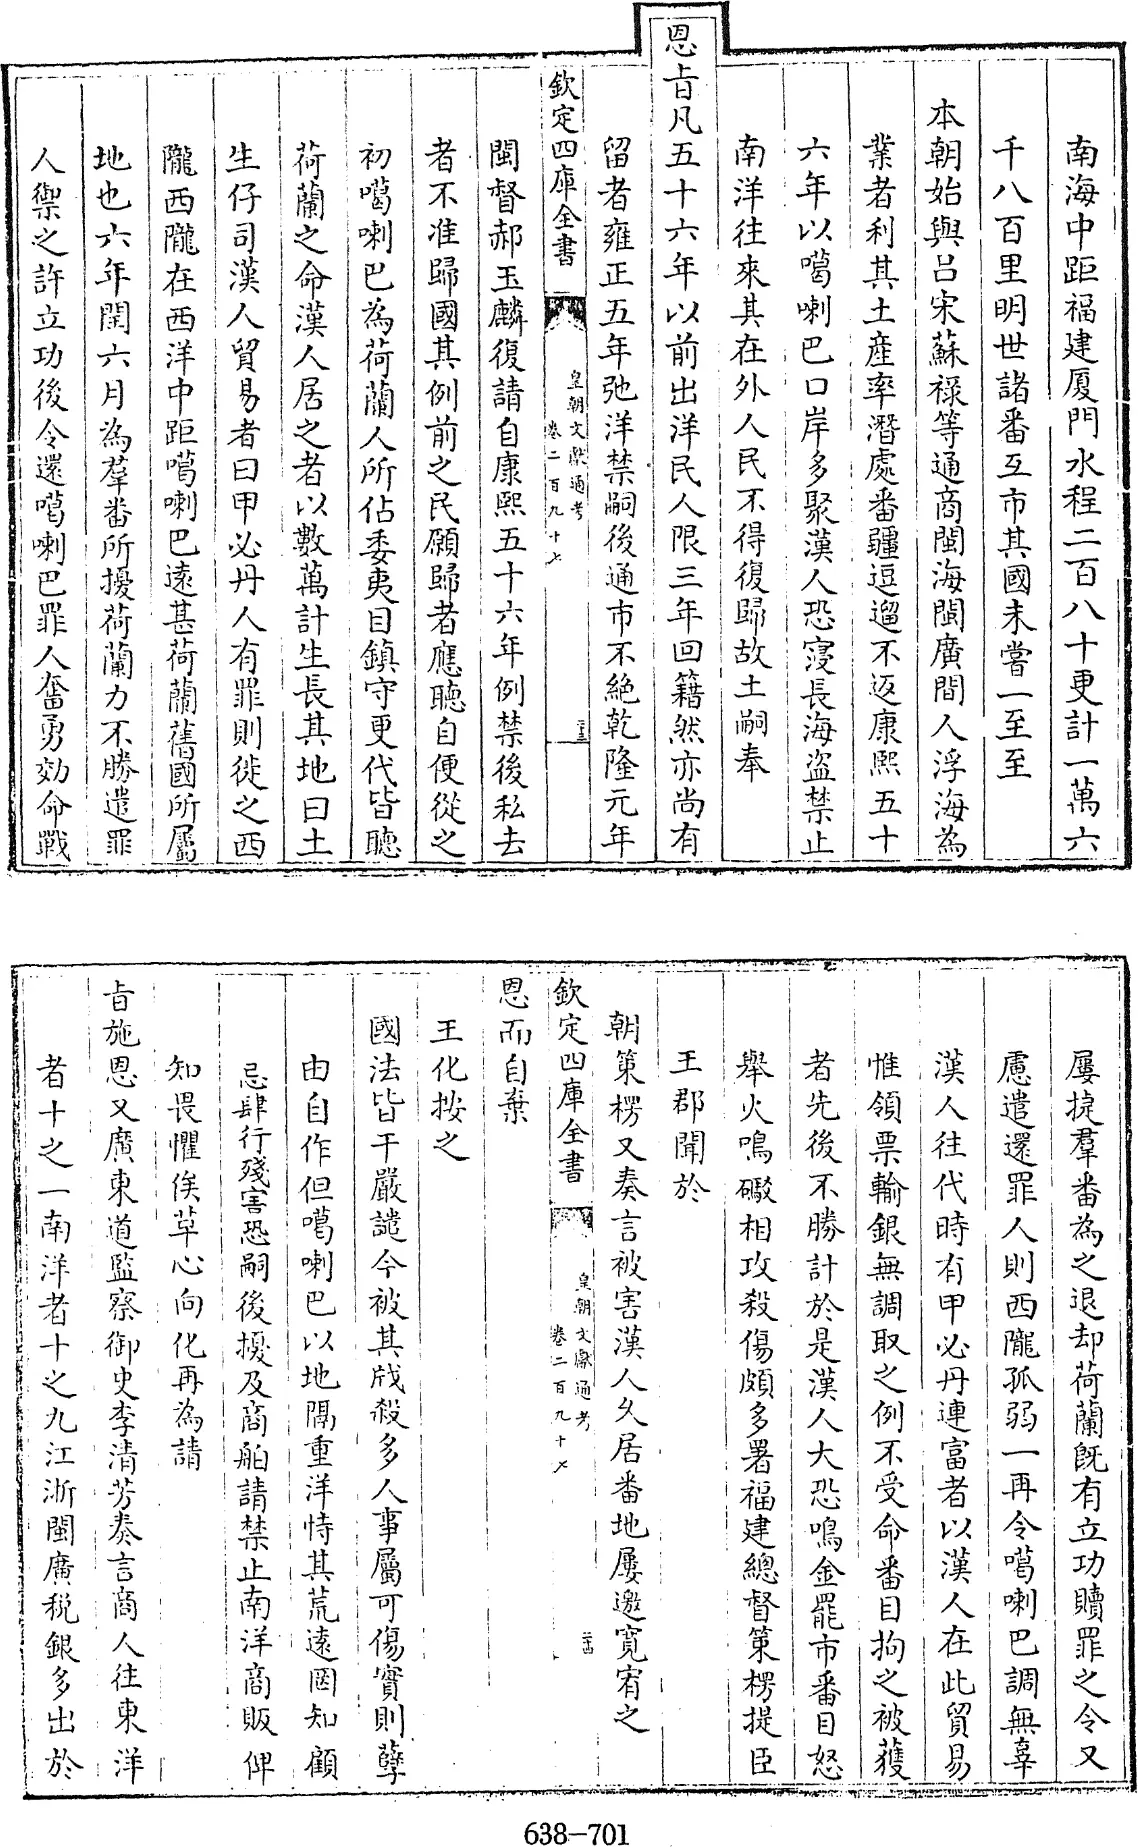 南海中距福建厦門水程二百八十更計一萬六
千八百里明世諸番互市其國未嘗一至至
本朝始與吕宋蘇禄等通商閩海閩廣間人浮海為
業者利其土産率潛處番疆逗遛不返康熙五十
六年以噶喇巴口岸多聚漢人恐寖長海盜禁止
南洋往來其在外人民不得復歸故土嗣奉
恩㫖凡五十六年以前出洋民人限三年回籍然亦尚有
留者雍正五年弛洋禁嗣後通市不絶乾隆元年
欽定四庫全書
皇朝文獻通考
卷二百九十七
二十三
閩督郝玉麟復請自康熙五十六年例禁後私去
者不准歸國其例前之民願歸者應聽自便從之
初噶喇巴為荷蘭人所佔委夷目鎮守更代皆聽
荷蘭之命漢人居之者以數萬計生長其地曰土
生仔司漢人貿易者曰甲必丹人有罪則徙之西
隴西隴在西洋中距噶喇巴遠甚荷蘭舊國所屬
地也六年閏六月為羣番所擾荷蘭力不勝遣罪
人禦之許立功後令還噶喇巴罪人奮勇効命戰
屢捷羣番為之退却荷蘭旣有立功贖罪之令又
慮遣還罪人則西隴孤弱一再令噶喇巴調無辜
漢人往代時有甲必丹連富者以漢人在此貿易
惟領票輸銀無調取之例不受命番目拘之被獲
者先後不勝計於是漢人大恐鳴金罷市番目怒
舉火鳴礮相攻殺傷頗多署福建總督策楞提臣
王郡聞於
朝策楞又奏言被害漢人久居番地屢邀寛宥之
欽定四庫全書
皇朝文獻通考
卷二百九十七
二十四
恩而自棄
王化按之
國法皆干嚴譴今被其戕殺多人事屬可傷實則孽
由自作但噶喇巴以地隔重洋恃其荒遠罔知顧
忌肆行殘害恐嗣後擾及商舶請禁止南洋商販俾
知畏懼俟革心向化再為請
㫖施恩又廣東道監察御史李清芳奏言商人往東洋
者十之一南洋者十之九江浙閩廣税銀多出於
638-701